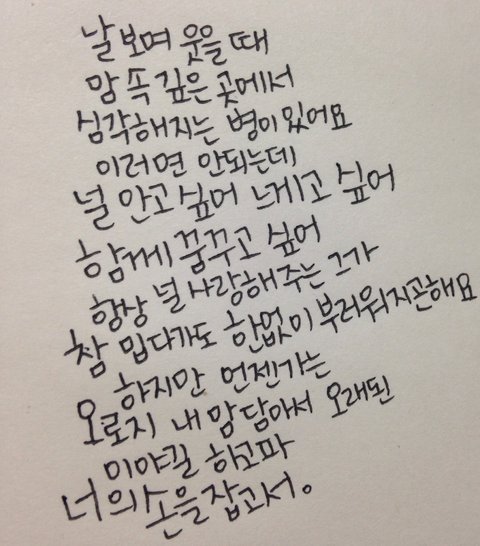 날 보며 웃을 때
맘 속 깊은 곳에서
심각해지는 병이 있어요
이러면 안되는데
널 안고 싶어 느끼고 싶어
함께 꿈꾸고 싶어
항상 널 사랑해주는 그가
참 밉다가도 한없이 부러워지곤해요
하지만 언젠가는
오로지 내 맘 담아서 오래된
이야길 하고파
너의 손을 잡고서.